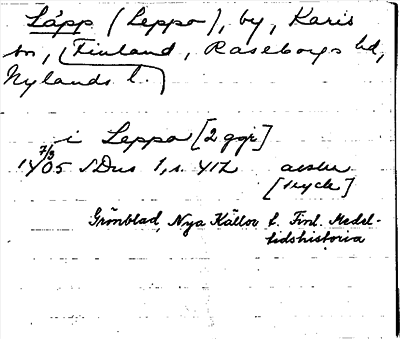 Läpp (Leppo), by, Karis
sn, Finland, Raseborgs hd,
Nylands l.
i Leppo [2 ggr]
7/3
1405 SDns 1, s. 417 avskr
[tryck]
Grönblad, Nya Källor t. Finl. Medel-
tidshistoria